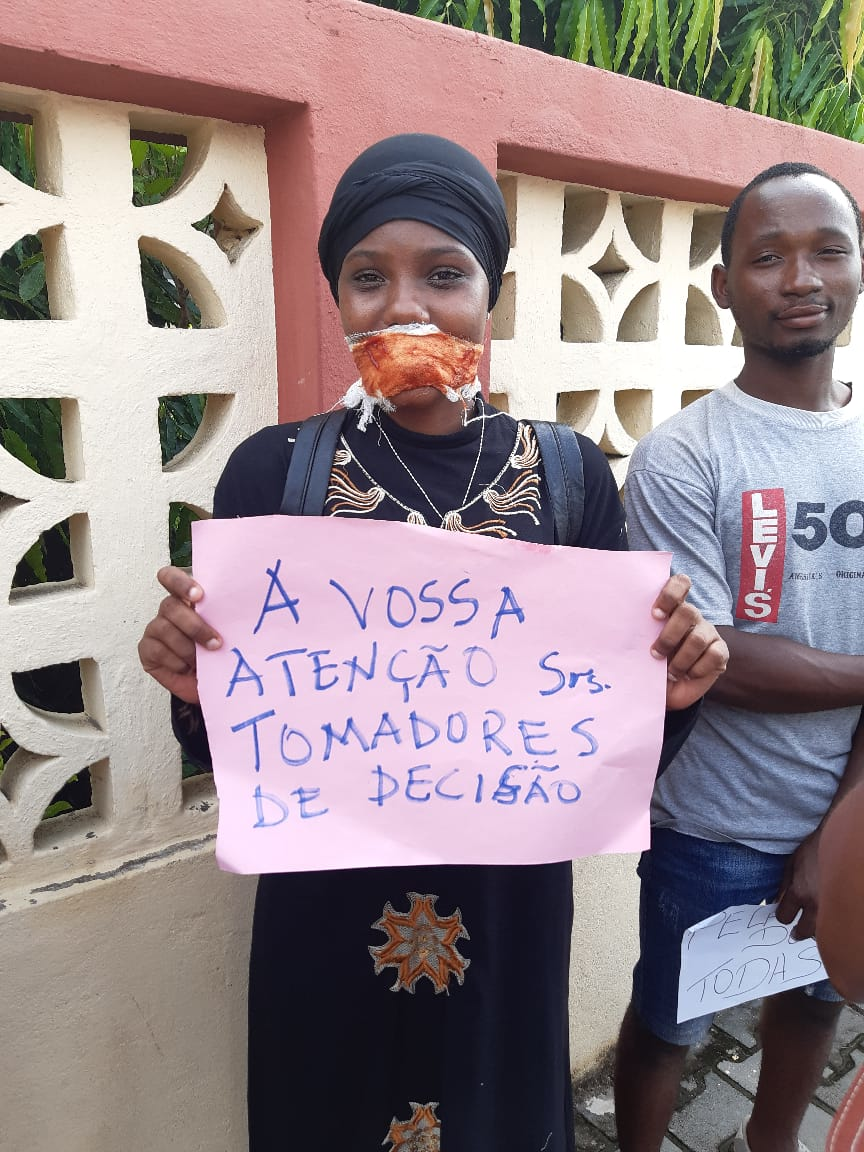 A VOSSA
ATENÇÃO Srs.
TOMADORES
DE DECISÃO
LEVI'S
50
ORIGINA
PELA
DO
TODAS